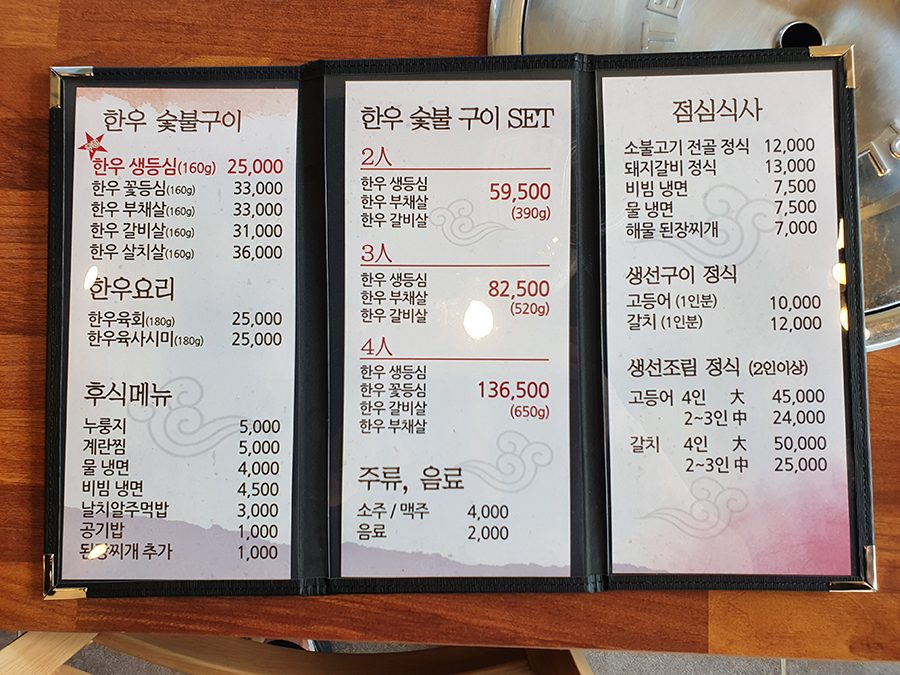 한우 숯불구이
한우 생등심(160g) 25,000
한우 꽃등심(160g) 33,000
한우 부채살(160g) 33,000
한우 갈비살(160g) 31,000
한우 살치살(160g) 36,000
한우요리
한우육회(180g) 25,000
한우육사시미(180g) 25,000
후식메뉴
누룽지 5,000
계란찜 5,000
물 냉면 4,000
비빔 냉면 4,500
날치알주먹밥 3,000
공기밥 1,000
된장찌개 추가 1,000
한우 숯불 구이 SET
2人
한우 생등심
한우 부채살
한우 갈비살
59,500
(390g)
3人
한우 생등심
한우 부채살
한우 갈비살
82,500
(520g)
4人
한우 생등심
한우 꽃등심
한우 갈비살
한우 부채살
136,500
(650g)
주류, 음료
소주 / 맥주 4,000
음료 2,000
점심식사
소불고기 전골 정식 12,000
돼지갈비 정식 13,000
비빔 냉면 7,500
물 냉면 7,500
해물 된장찌개 7,000
생선구이 정식
고등어 (1인분) 10,000
갈치 (1인분) 12,000
생선조림 정식 (2인이상)
고등어 4인 大 45,000
2~3인 中 24,000
갈치 4인 大 50,000
2~3인 中 25,000